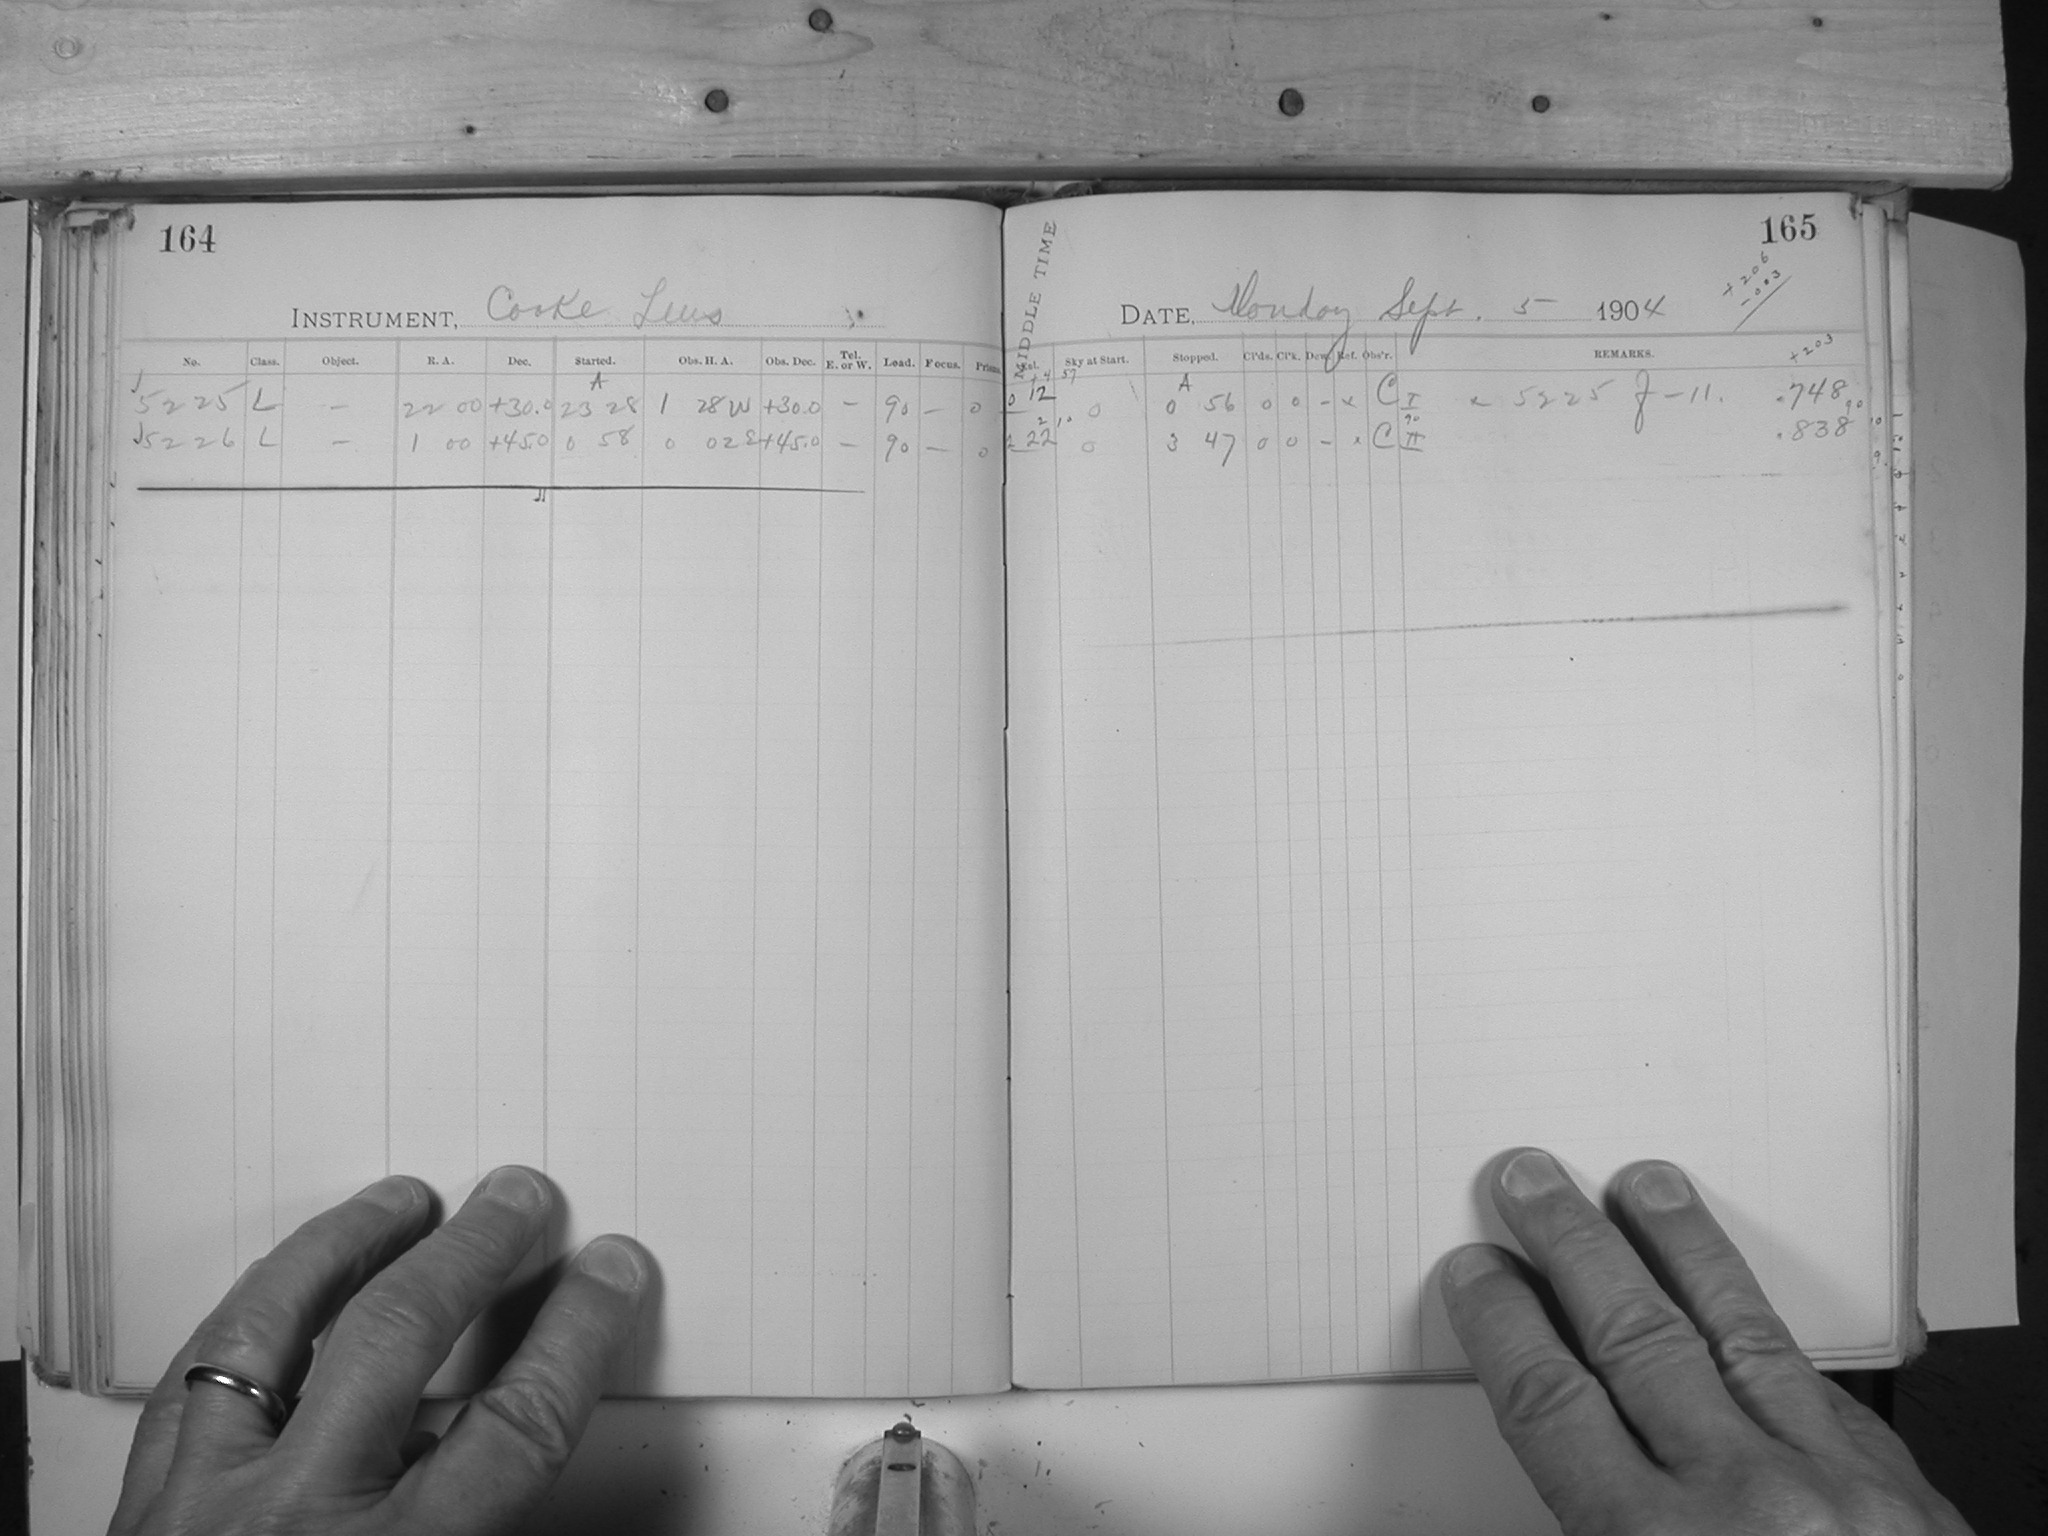 164
INSTRUMENT, Cooke Lens
No. Class. Object. R. A. Dec. Started. Obs. H. A. Obs. Dec. Tel. E. or W. Load. Focus. Prism.
A
5225 L — 22 00 +30.0 23 28 1 28W +30.0 — 90 — 0
5226 L — 1 00 +45.0 0 58 0 02E +45.0 — 90 — 0
165
MIDDLE TIME
+206
-003
DATE, Monday Sept. 5 1904
Sky at Start. Stopped. Cl'ds. Cl'k. Dew. Ref. Obs'r. REMARKS.
+203
+4 57 A
0 12 0 0 56 0 0 - x C I x 5225 J-11. .748
2 10 90 90
2 22 0 3 47 0 0 - x C II .838